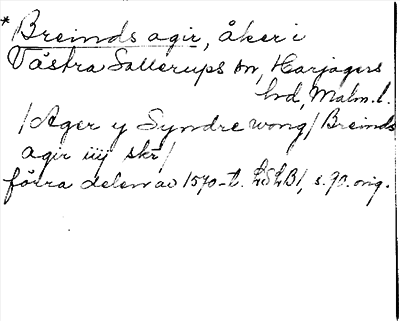 * Breinds agir, åker i
Västra Sallerups sn, Harjagers
hd, Malm. l.
/Ager y Syndre wong/ Breinds
agir iiij skr/
förra delen av 1570-t. LSLB1, s. 90. orig.